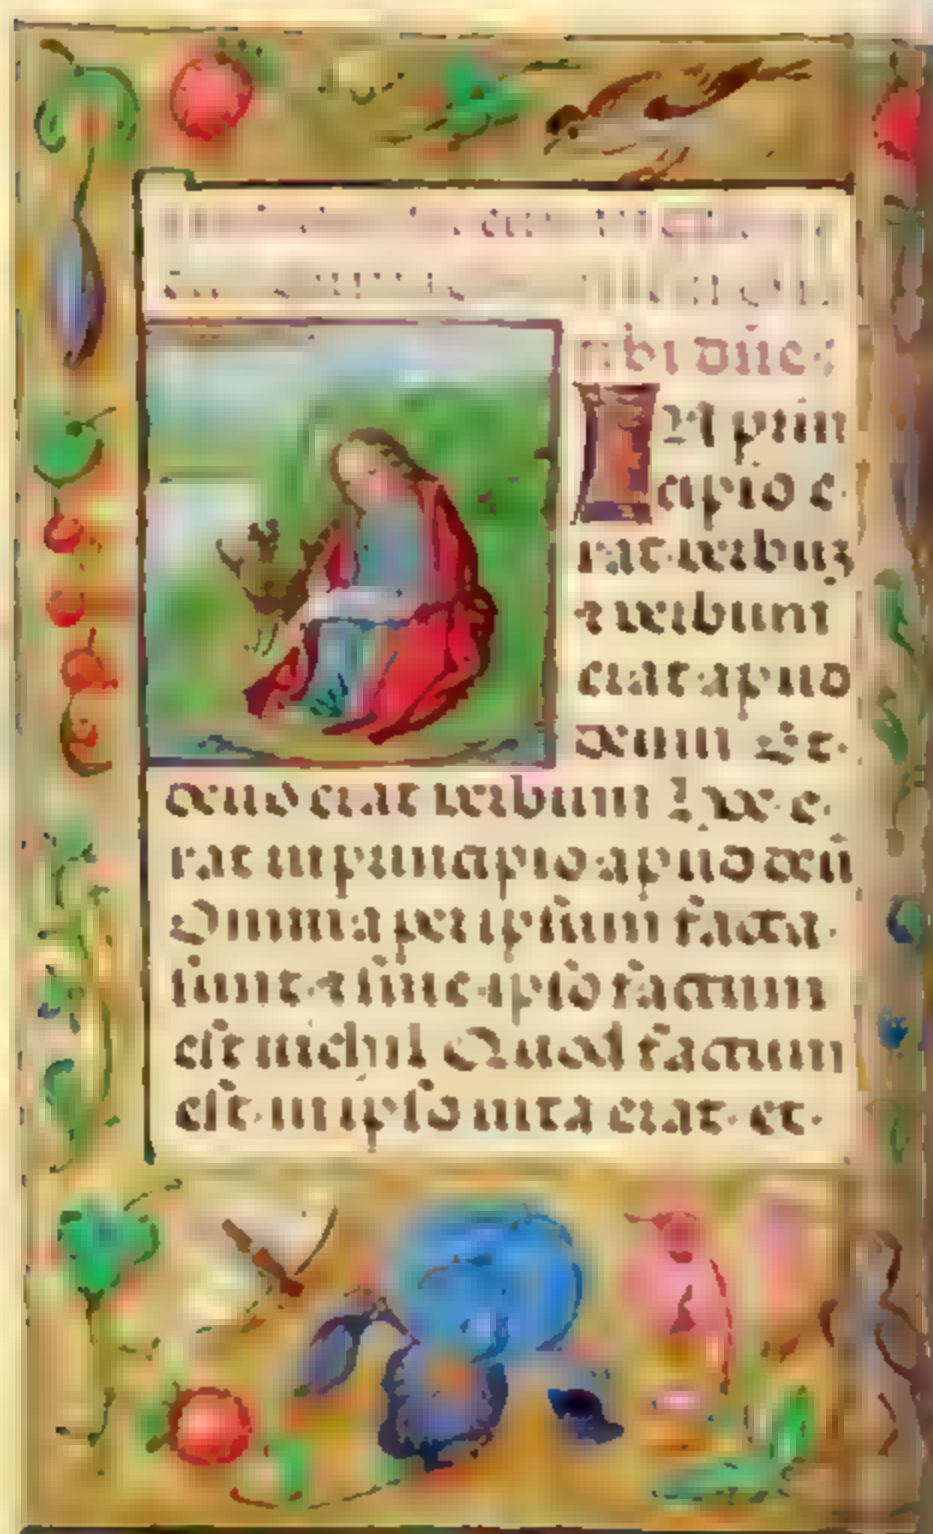 bi dñe
IN prin
cipio e
rat verbuʒ
⁊ verbum
erat apud
deum Et
deus erat verbum Hoc e
rat in principio apud deū
Omnia per ipsum facta
sunt ⁊ sine ipso factum
est nichil Quod factum
est in ipso uita erat et